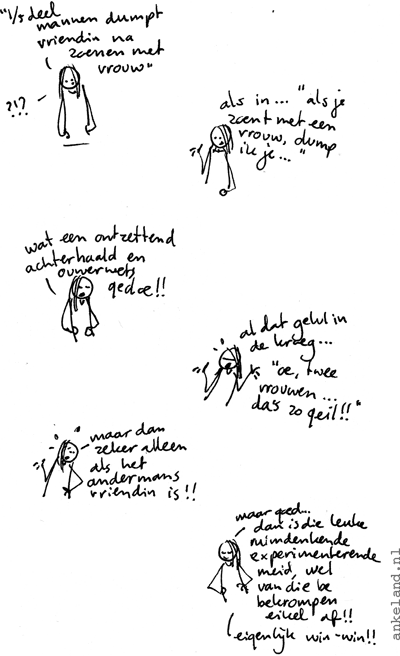 "1/5 deel
mannen dumpt
vriendin na
zoenen met
vrouw"
?!?
als in... "als je
zoent met een
vrouw, dump
ik je..."
wat een ontzettend
achterhaald en
ouwerwets
gedoe!!
al dat gelul in
de kroeg...
"oe, twee
vrouwen...
da's zo geil!!"
maar dan
zeker alleen
als het
andermans
vriendin is!!
maar goed...
dan is die leuke
ruimdenkende
experimenterende
meid, wel
van die be
bekrompen
eikel af!!
eigenlijk win-win!!
ankeland.nl